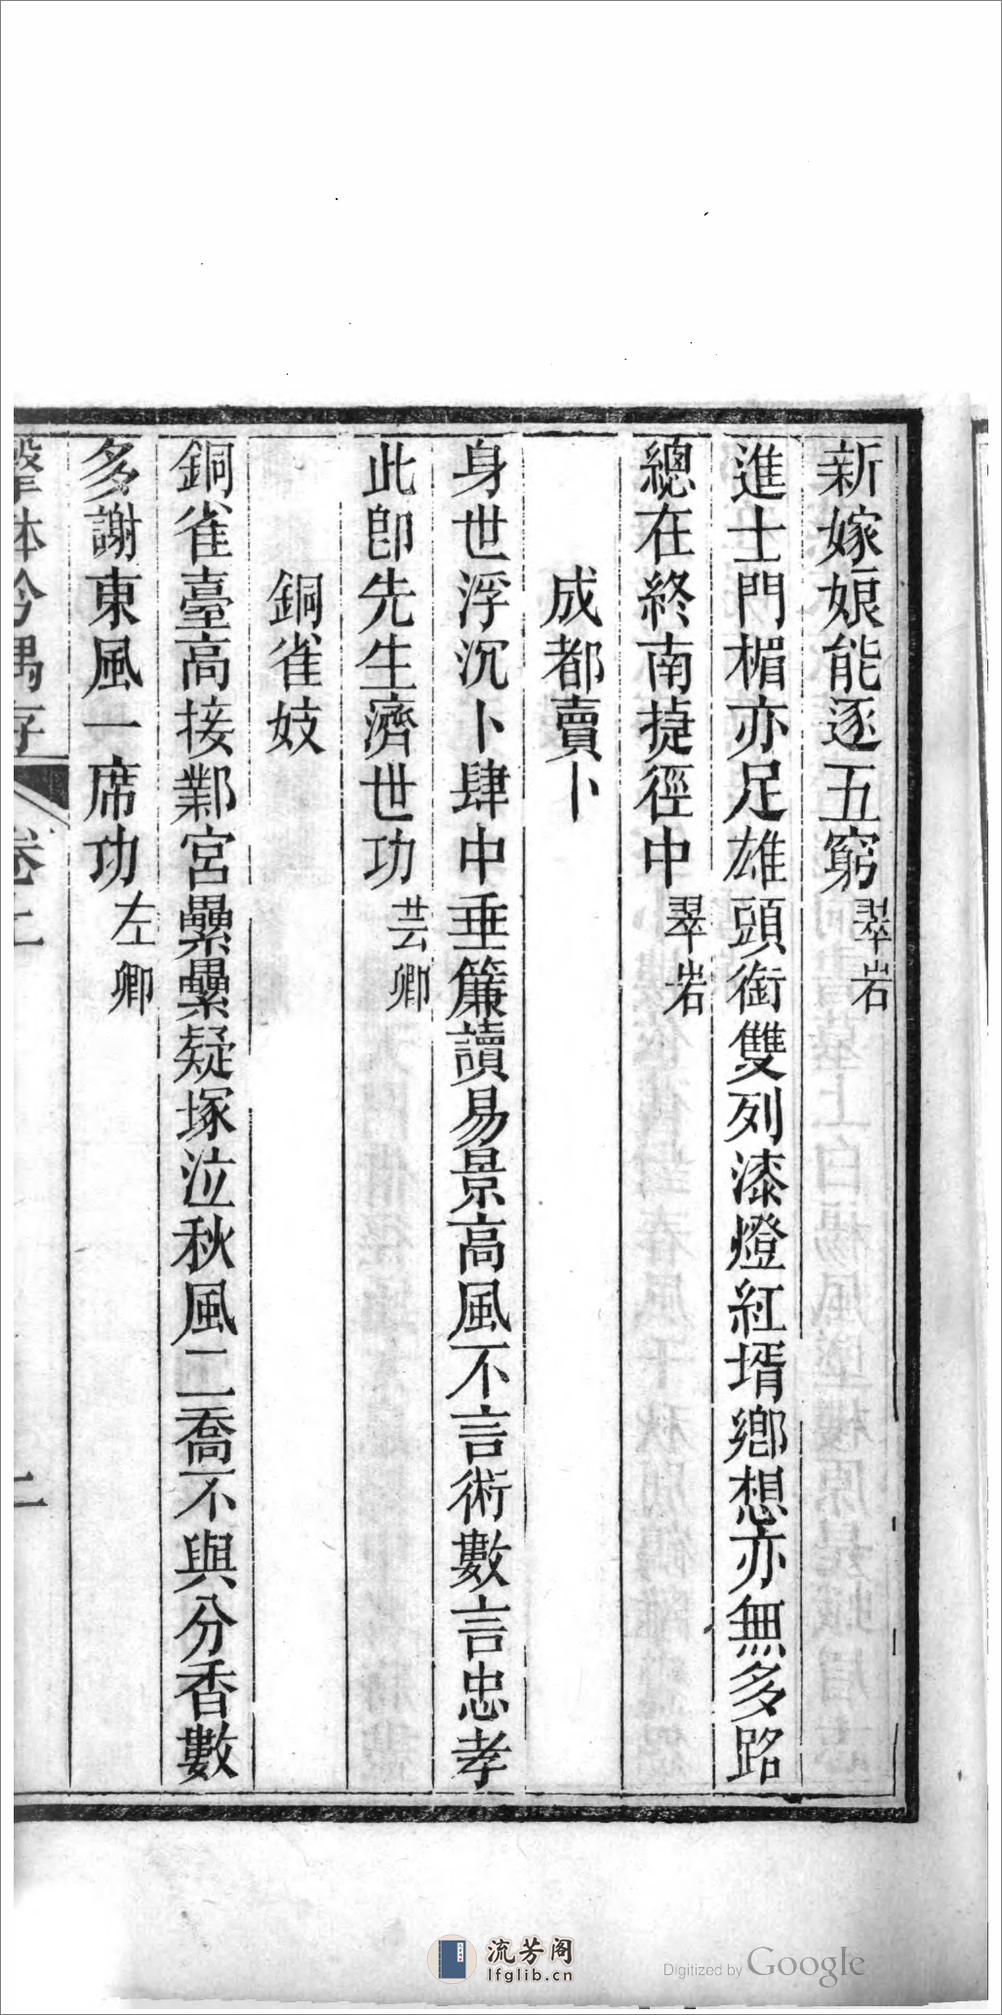 新嫁娘能逐五窮翠岩
進士門楣亦足雄頭銜雙列漆燈紅壻鄉想亦無多路
總在終南捷徑中翠岩
成都賣卜
身世浮沉卜肆中垂簾讀易景高風不言術數言忠孝
此卽先生濟世功芸卿
銅雀妓
銅雀臺高接鄴宮纍纍疑塚泣秋風二喬不與分香數
多謝東風一席功左卿
擊鉢吟偶存
卷上
流芳阁
lfglib.cn
Digitized by Google